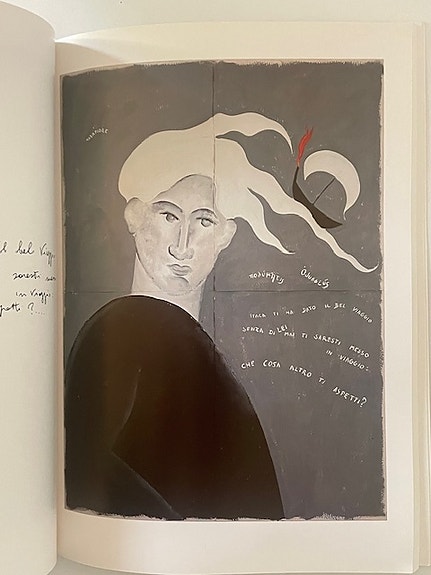 bel Viaggi
saresti
in viaggi
πολύμητις Ὀδυσσεύς
ITACA TI HA DATO IL BEL VIAGGIO
SENZA DI LEI MAI TI SARESTI MESSO
IN VIAGGIO:
CHE COSA ALTRO TI ASPETTI?